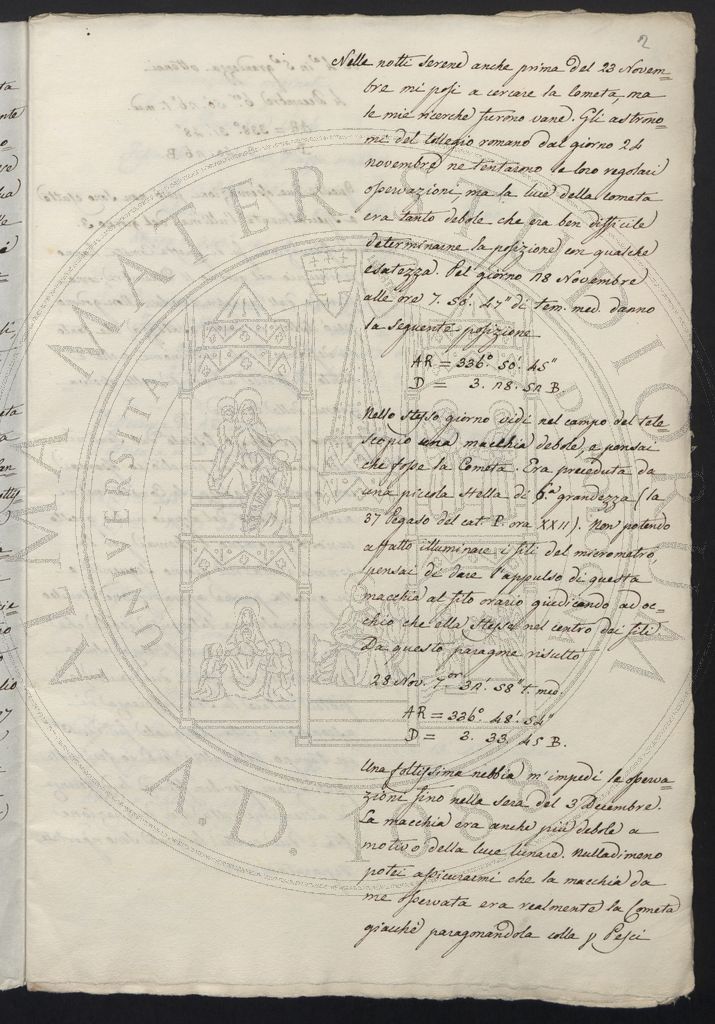 2
Nelle notti serene anche prima del 23 Novem=
bre mi posi a cercare la Cometa, ma
le mie ricerche furono vane. Gli astrono=
mi del Collegio romano dal giorno 24
novembre ne tentarono le loro regolari
osservazioni, ma la luce della cometa
era tanto debole che era ben difficile
determinarne la posizione con qualche
esatezza. Pel giorno 28 Novembre
alle ore 7. 56'. 47" di tem. med. danno
la seguente posizione
AR = 336°. 50'. 45"
D = 3. 28. 52 B.
Nello stesso giorno vidi nel campo del tele=
scopio una macchia debole, e pensai
che fosse la Cometa. Era preceduta da
una piccola stella di 6.a grandezza (la
37 Pegaso del cat. P. ora XXII). Non potendo
affatto illuminare i fili del micrometro,
pensai di dare l'appulso di questa
macchia al filo orario giudicando ad oc=
chio che ella stesse nel centro dai fili
Da questo paragone risultò
28 Nov. 7.or 32'. 58" t. med.
AR = 336°. 48'. 54"
D = 3. 33. 45 B.
Una foltissima nebbia m'impedì le osserva=
zioni fino nella sera del 3 Decembre.
La macchia era anche più debole a
motivo della luce lunare. Nulladimeno
potei assicurarmi che la macchia da
me osservata era realmente la Cometa
giacchè paragonandola colla γ Pesci
ALMA MATER STUDIORUM
UNIVERSITÀ
A.D. 1088